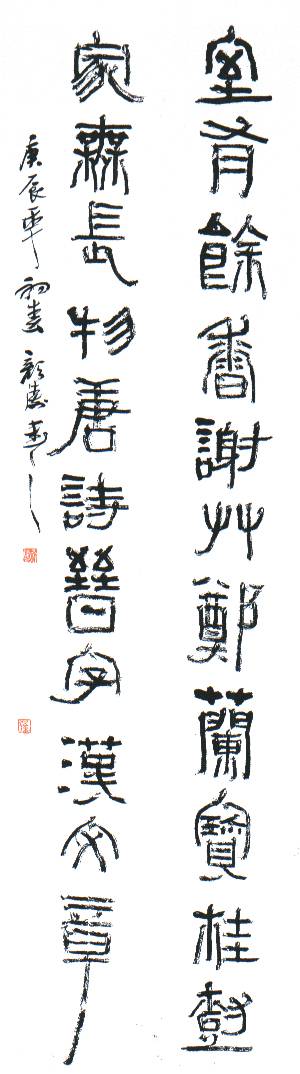 室有餘香謝艸鄭蘭寶桂樹
家無長物唐詩晉字漢文章
庚辰年初春